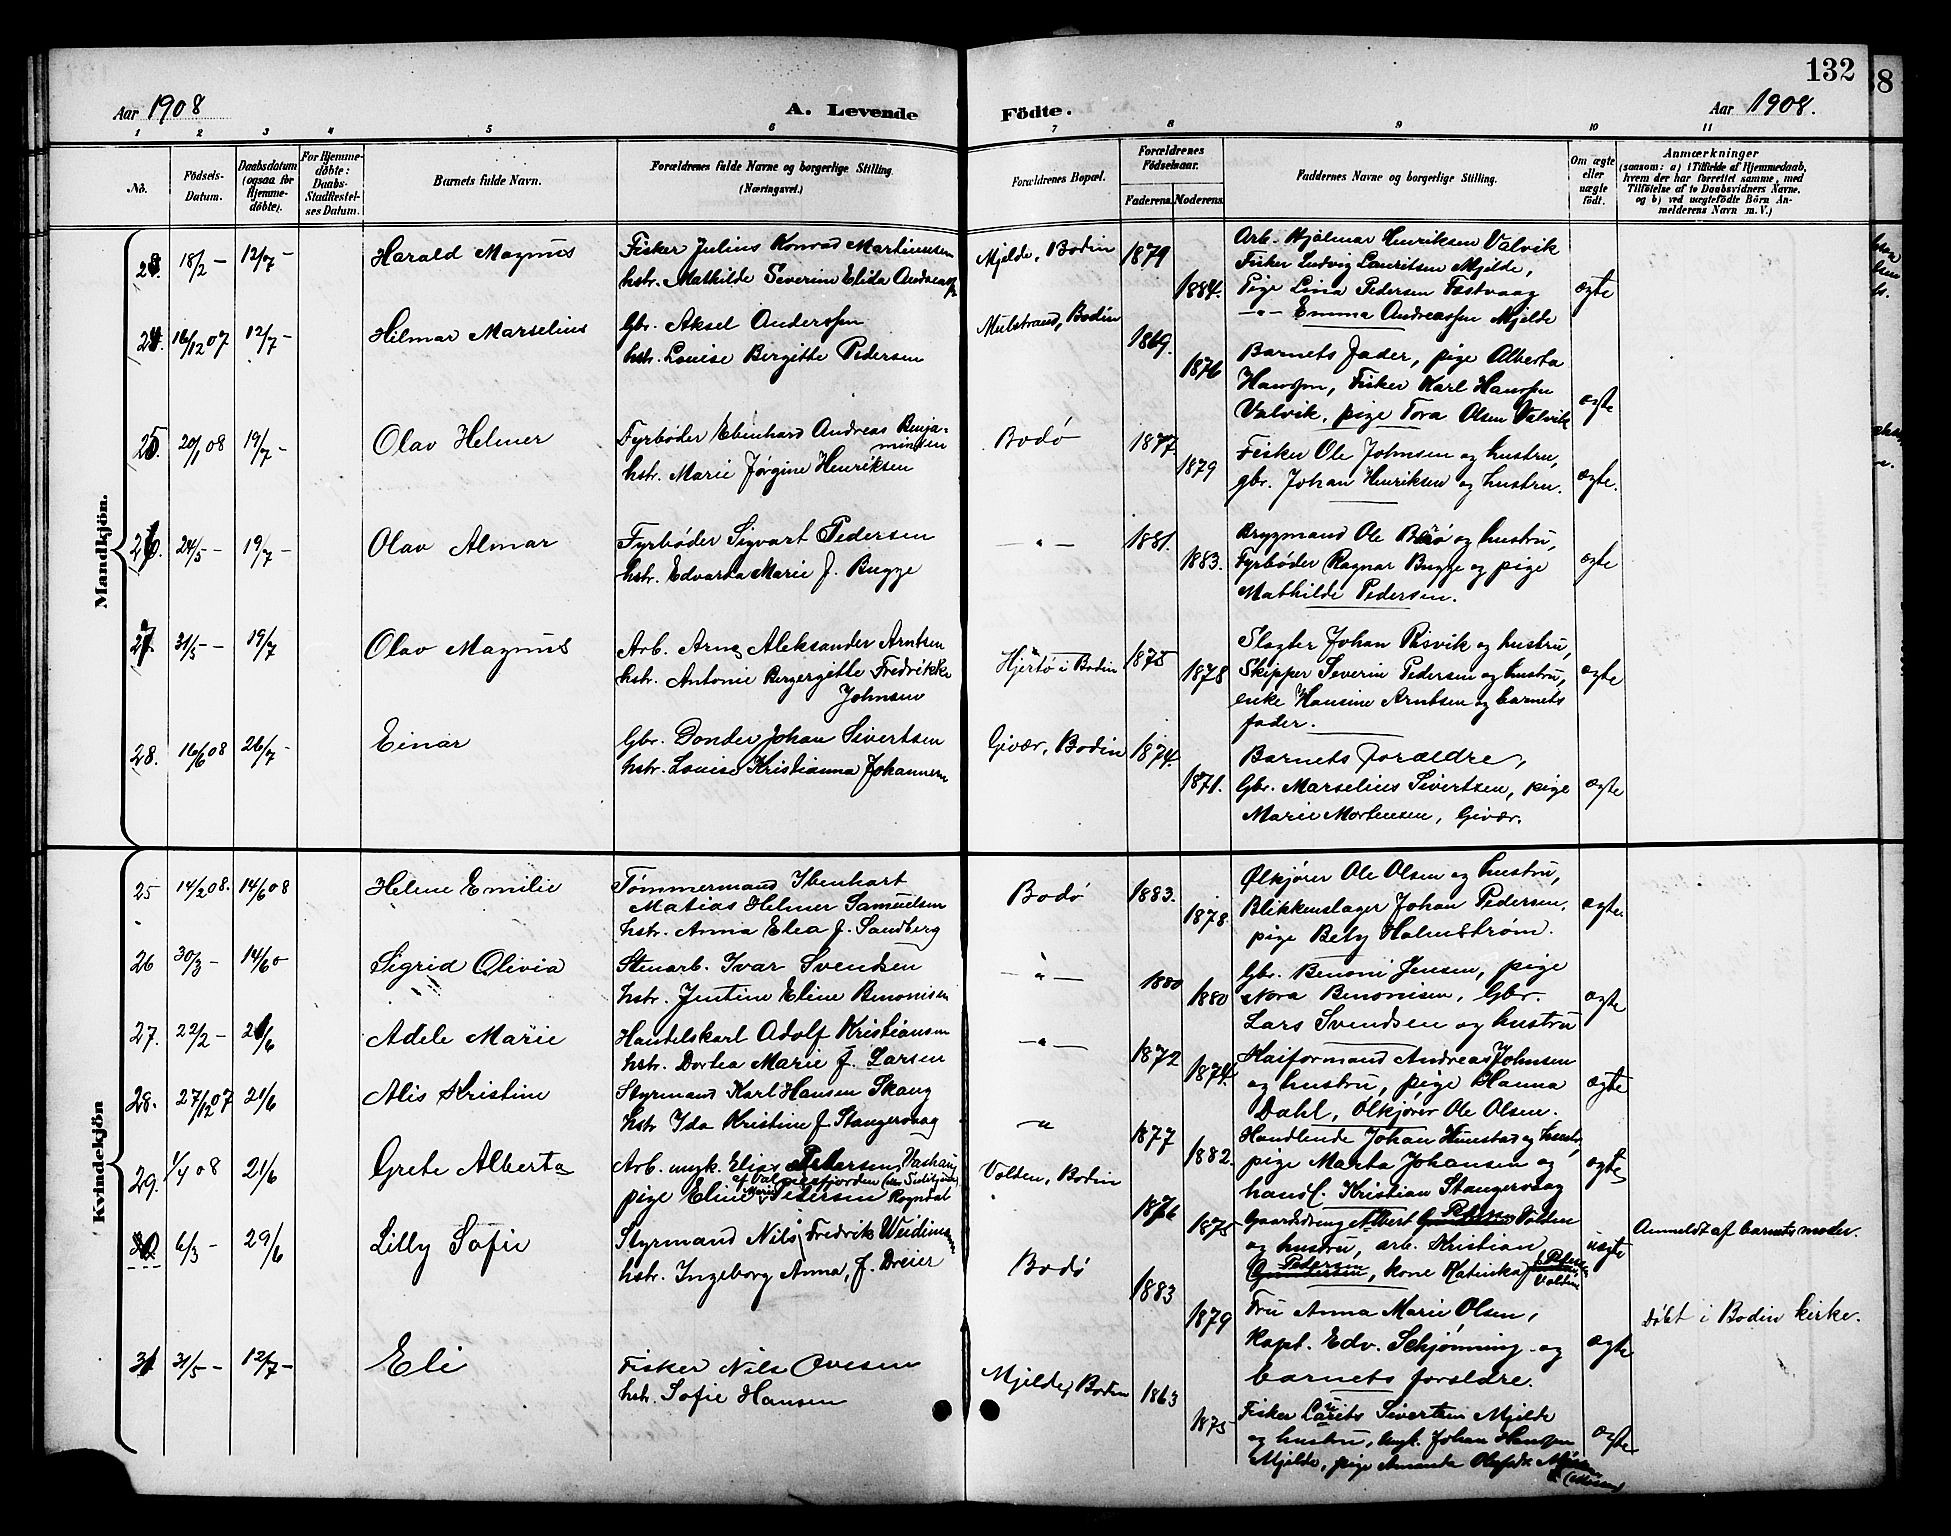 132
Aar 1908
A. Levende
Födte.
Aar 1908.
1 2 3 4 5 6 7 8 9 10 11
No.
Födsels-Datum.
Daabsdatum (ogsaa for Hjemme-döbte).
For Hjemme-döbte: Daabs-Stadfæstel-ses Datum.
Barnets fulde Navn.
Forældrenes fulde Navne og borgerlige Stilling.
(Næringsvei.)
Forældrenes Bopæl.
Forældrenes Födselsaar.
Faderens. Moderens.
Faddernes Navne og borgerlige Stilling.
Om ægte eller uægte födt.
Anmærkninger
(saasom: a) i Tilfælde af Hjemmedaab,
hvem der har forrettet samme, med
Tilföielse af to Daabsvidners Navne,
og b) ved uægtefödte Börn An-
melderens Navn m. V.)
Mandkjön.
23. 18/2 - 12/7 - Harald Magnus
Fisker Julius Konrad Martinussen
hstr. Mathilde Severine Elida Andreassen
Mjelde, Bodin 1879 1884.
Arb. Hjalmar Henriksen Valvik
Fisker Ludvig Lauritsen Mjelde,
Pige Lina Pedersen Fæstvaag
-"- Emma Andreassen Mjelde
ægte
24. 16/12 07 12/7 - Hilmar Marselius
Gbr. Aksel Anderssen
hstr. Louise Bergitte Pedersen
Mulstrand, Bodin 1869. 1876
Barnets Fader, pige Alberta
Hanssen, Fisker Karl Hanssen
Valvik, pige Tora Olsen Valvik
ægte
25. 20/1 08 19/7 - Olav Helmer
Fyrbøder Ebenhard Andreas Benja-
minsen
hstr. Marie Jørgine Henriksen
Bodø 1877 1879
Fisker Ole Johnsen og hustru,
gbr. Johan Henriksen og hustru.
ægte.
26. 24/5 - 19/7 - Olav Almar
Fyrbøder Sigvart Pedersen
hstr. Edvarda Marie f. Bugge
-"- 1881. 1883.
Brygmand Ole Barø og hustru,
Fyrbøder Ragnar Bugge og pige
Mathilde Pedersen.
ægte
27. 31/5 - 19/7 Olav Magnus
Arb. Arne Aleksander Arntsen
hstr. Antonie Bergergitte Fredrikke
Johnsen
Hjertø i Bodin 1875 1878
Slagter Johan Risvik og hustru,
Skipper Severin Pedersen og hustru,
enke Hansine Arntsen og barnets
fader.
ægte
28. 16/6 08 26/7 - Einar
Gbr. Donder Johan Sivertsen
hstr. Louise Kristianna Johannesen
Givær, Bodin 1874. 1871.
Barnets forældre,
Gbr. Marselius Sivertsen, pige
Marie Mortensen, Givær.
ægte
Kvindekjön
25 14/2 08. 14/6 08 Helene Emilie
Tømmermand Ibenhart
Matias Helmer Samuelsen
hstr. Anna Elea f. Sandberg
Bodø 1883. 1878.
Ølkjører Ole Olsen og hustru,
Blikkenslager Johan Pedersen,
pige Bety Holmstrøm.
ægte.
26 30/3 - 14/6 - Sigrid Olivia
Stenarb. Ivar Svendsen
hstr. Justine Eline Benonisen
-"- 1880 1880
Gbr. Benoni Jensen, pige
Nora Benonisen, Gbr.
Lars Svendsen og hustru
ægte
27. 22/2 - 21/6 Adele Marie
Handelskarl Adolf Kristiansen
hstr. Dortea Marie f. Larsen
-"- 1872 1874.
Kaiformand Andreas Johnsen
og hustru, pige Hanna
Dahl, Ølkjører Ole Olsen.
ægte
28. 27/12 07 21/6 Alis Kristine
Styrmand Karl Hansen Skaug
hstr. Ida Kristine f. Stangervaag
" 1877 1882.
Handlende Johan Hunstad og hustr.,
pige Marta Johansen og
handl. Kristian Stangervaag
ægte
29. 1/4 08 21/6 Grete Alberta
Arb. ungk. Elias Pedersen
pige Eline Marie Petersen Rogndal
Volden, Bodin 1876 1875
Gaardsdreng Albert Petersen Volden
og hustru, arb. Kristian
Pedersen, kone Katinka Petersen
Volden
uægte
Anmeldt af barnets moder.
30 6/3 - 29/6 Lilly Sofie
Styrmand Nils Fredrik Weidemann
hstr. Ingeborg Anna, f. Dreier
Bodø 1883 1879
Fru Anna Marie Olsen,
Kapt. Edv. Schjønning og
barnets forældre.
ægte
Døbt i Bodin kirke.
31 31/5 - 12/7 - Eli
Fisker Nils Ovesen
hstr. Sofie Hansen
Mjelde, Bodin 1863 1875
Fisker Laurits Sivertsen Mjelde
og hustru, ungk. Johan Hanssen
Mjelde, pige Amanda
ægte